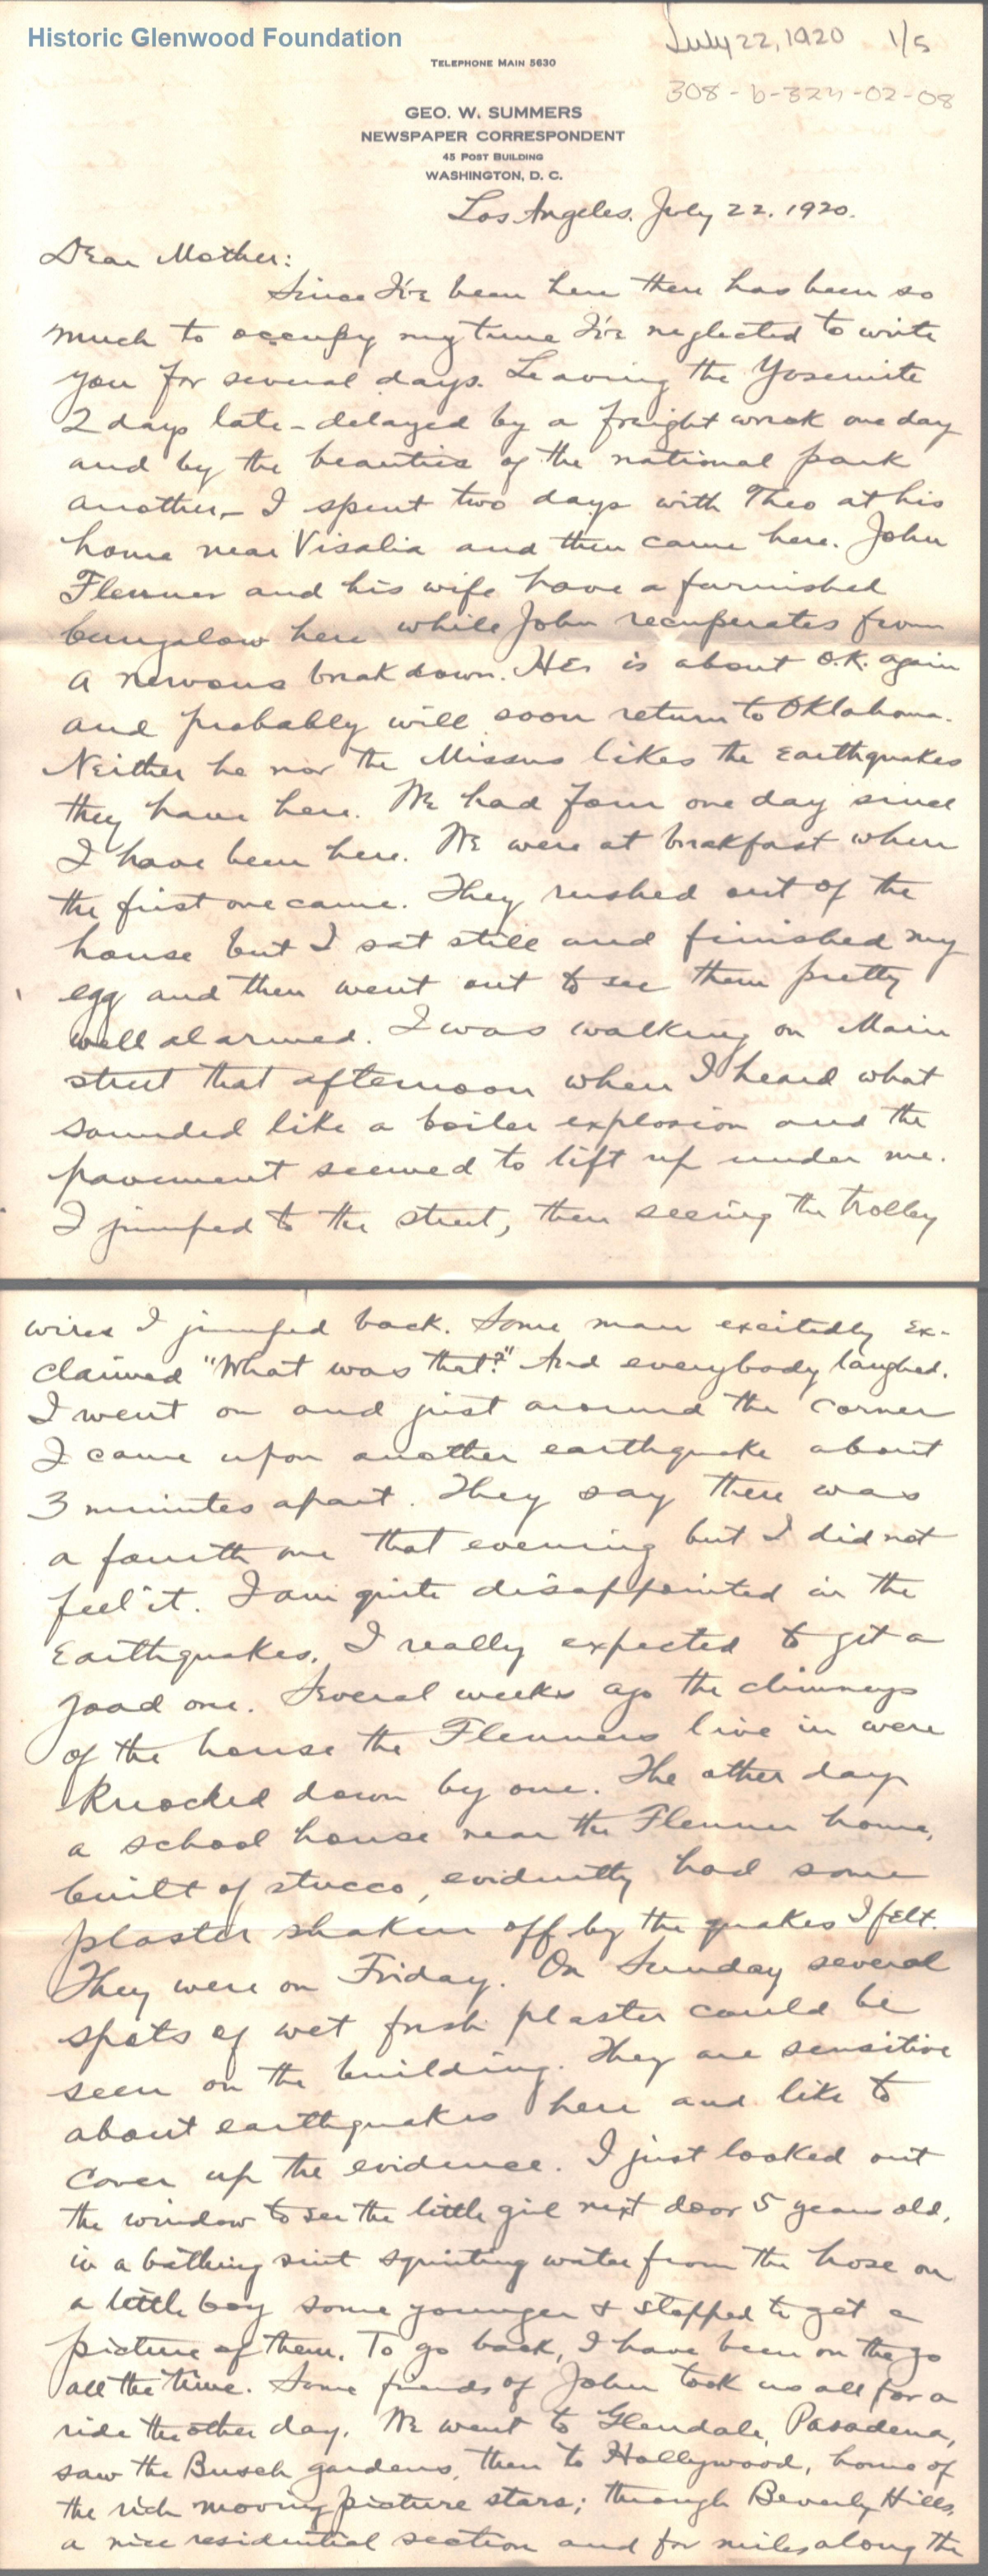 Historic Glenwood Foundation
July 22, 1920 1/5
308-b-324-02-08
TELEPHONE MAIN 5630
GEO. W. SUMMERS
NEWSPAPER CORRESPONDENT
45 POST BUILDING
WASHINGTON, D. C.
Los Angeles, July 22, 1920.
Dear Mother:
Since I've been here there has been so
much to occupy my time I've neglected to write
you for several days. Leaving the Yosemite
2 days late - delayed by a freight wreck one day
and by the beauties of the national park
another, - I spent two days with Theo at his
home near Visalia and then came here. John
Flenner and his wife have a furnished
bungalow here while John recuperates from
a nervous breakdown. He is about O.K. again
and probably will soon return to Oklahoma.
Neither he nor the Missus likes the earthquakes
they have here. We had four one day since
I have been here. We were at breakfast when
the first one came. They rushed out of the
house but I sat still and finished my
egg and then went out to see them pretty
well alarmed. I was walking on Main
street that afternoon when I heard what
sounded like a boiler explosion and the
pavement seemed to lift up under me.
I jumped to the street, then seeing the trolley
wires I jumped back. Some man excitedly ex-
claimed "What was that?" And everybody laughed.
I went on and just around the corner
I came upon another earthquake about
3 minutes apart. They say there was
a fourth one that evening but I did not
feel it. I am quite disappointed in the
Earthquakes. I really expected to get a
good one. Several weeks ago the chimneys
of the house the Flenners live in were
knocked down by one. The other day
a school house near the Flenner home,
built of stucco, evidently had some
plaster shaken off by the quakes I felt.
They were on Friday. On Sunday several
spots of wet fresh plaster could be
seen on the building. They are sensitive
about earthquakes here and like to
cover up the evidence. I just looked out
the window to see the little girl next door 5 years old,
in a bathing suit squirting water from the hose on
a little boy some younger & stopped to get a
picture of them. To go back, I have been on the go
all the time. Some friends of John took us all for a
ride the other day. We went to Glendale, Pasadena,
saw the Busch gardens, then to Hollywood, home of
the rich moving picture stars; through Beverly Hills,
a nice residential section and for miles along the